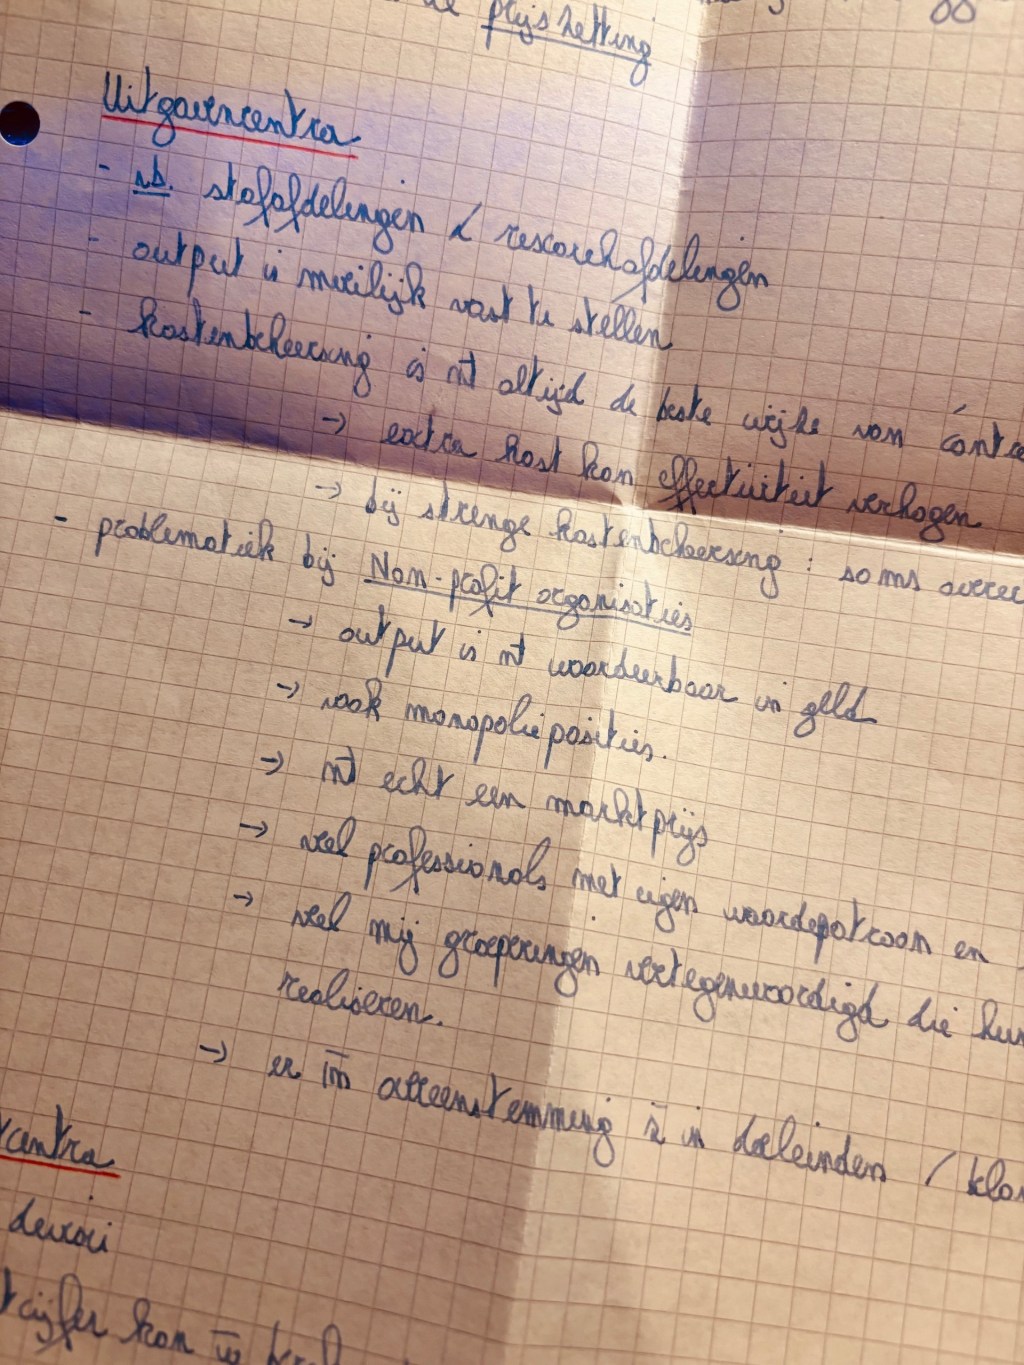 prijszetting
Uitgavencentra
- vb. stafafdelingen & researchafdelingen
- output is moeilijk vast te stellen
- kostenbeheersing is nt altijd de beste wijze van contro
→ extra kost kan effectiviteit verhogen
→ bij strenge kostenbeheersing : soms
- problematiek bij Non-profit organisaties
→ output is nt waardeerbaar in geld
→ vaak monopolieposities.
→ nt echt een marktprijs
→ veel professionals met eigen waardepatroon en
→ veel mij groeperingen vertegenwoordigd die hun
realiseren.
→ er overeenstemming zn in doeleinden /
centra
kan